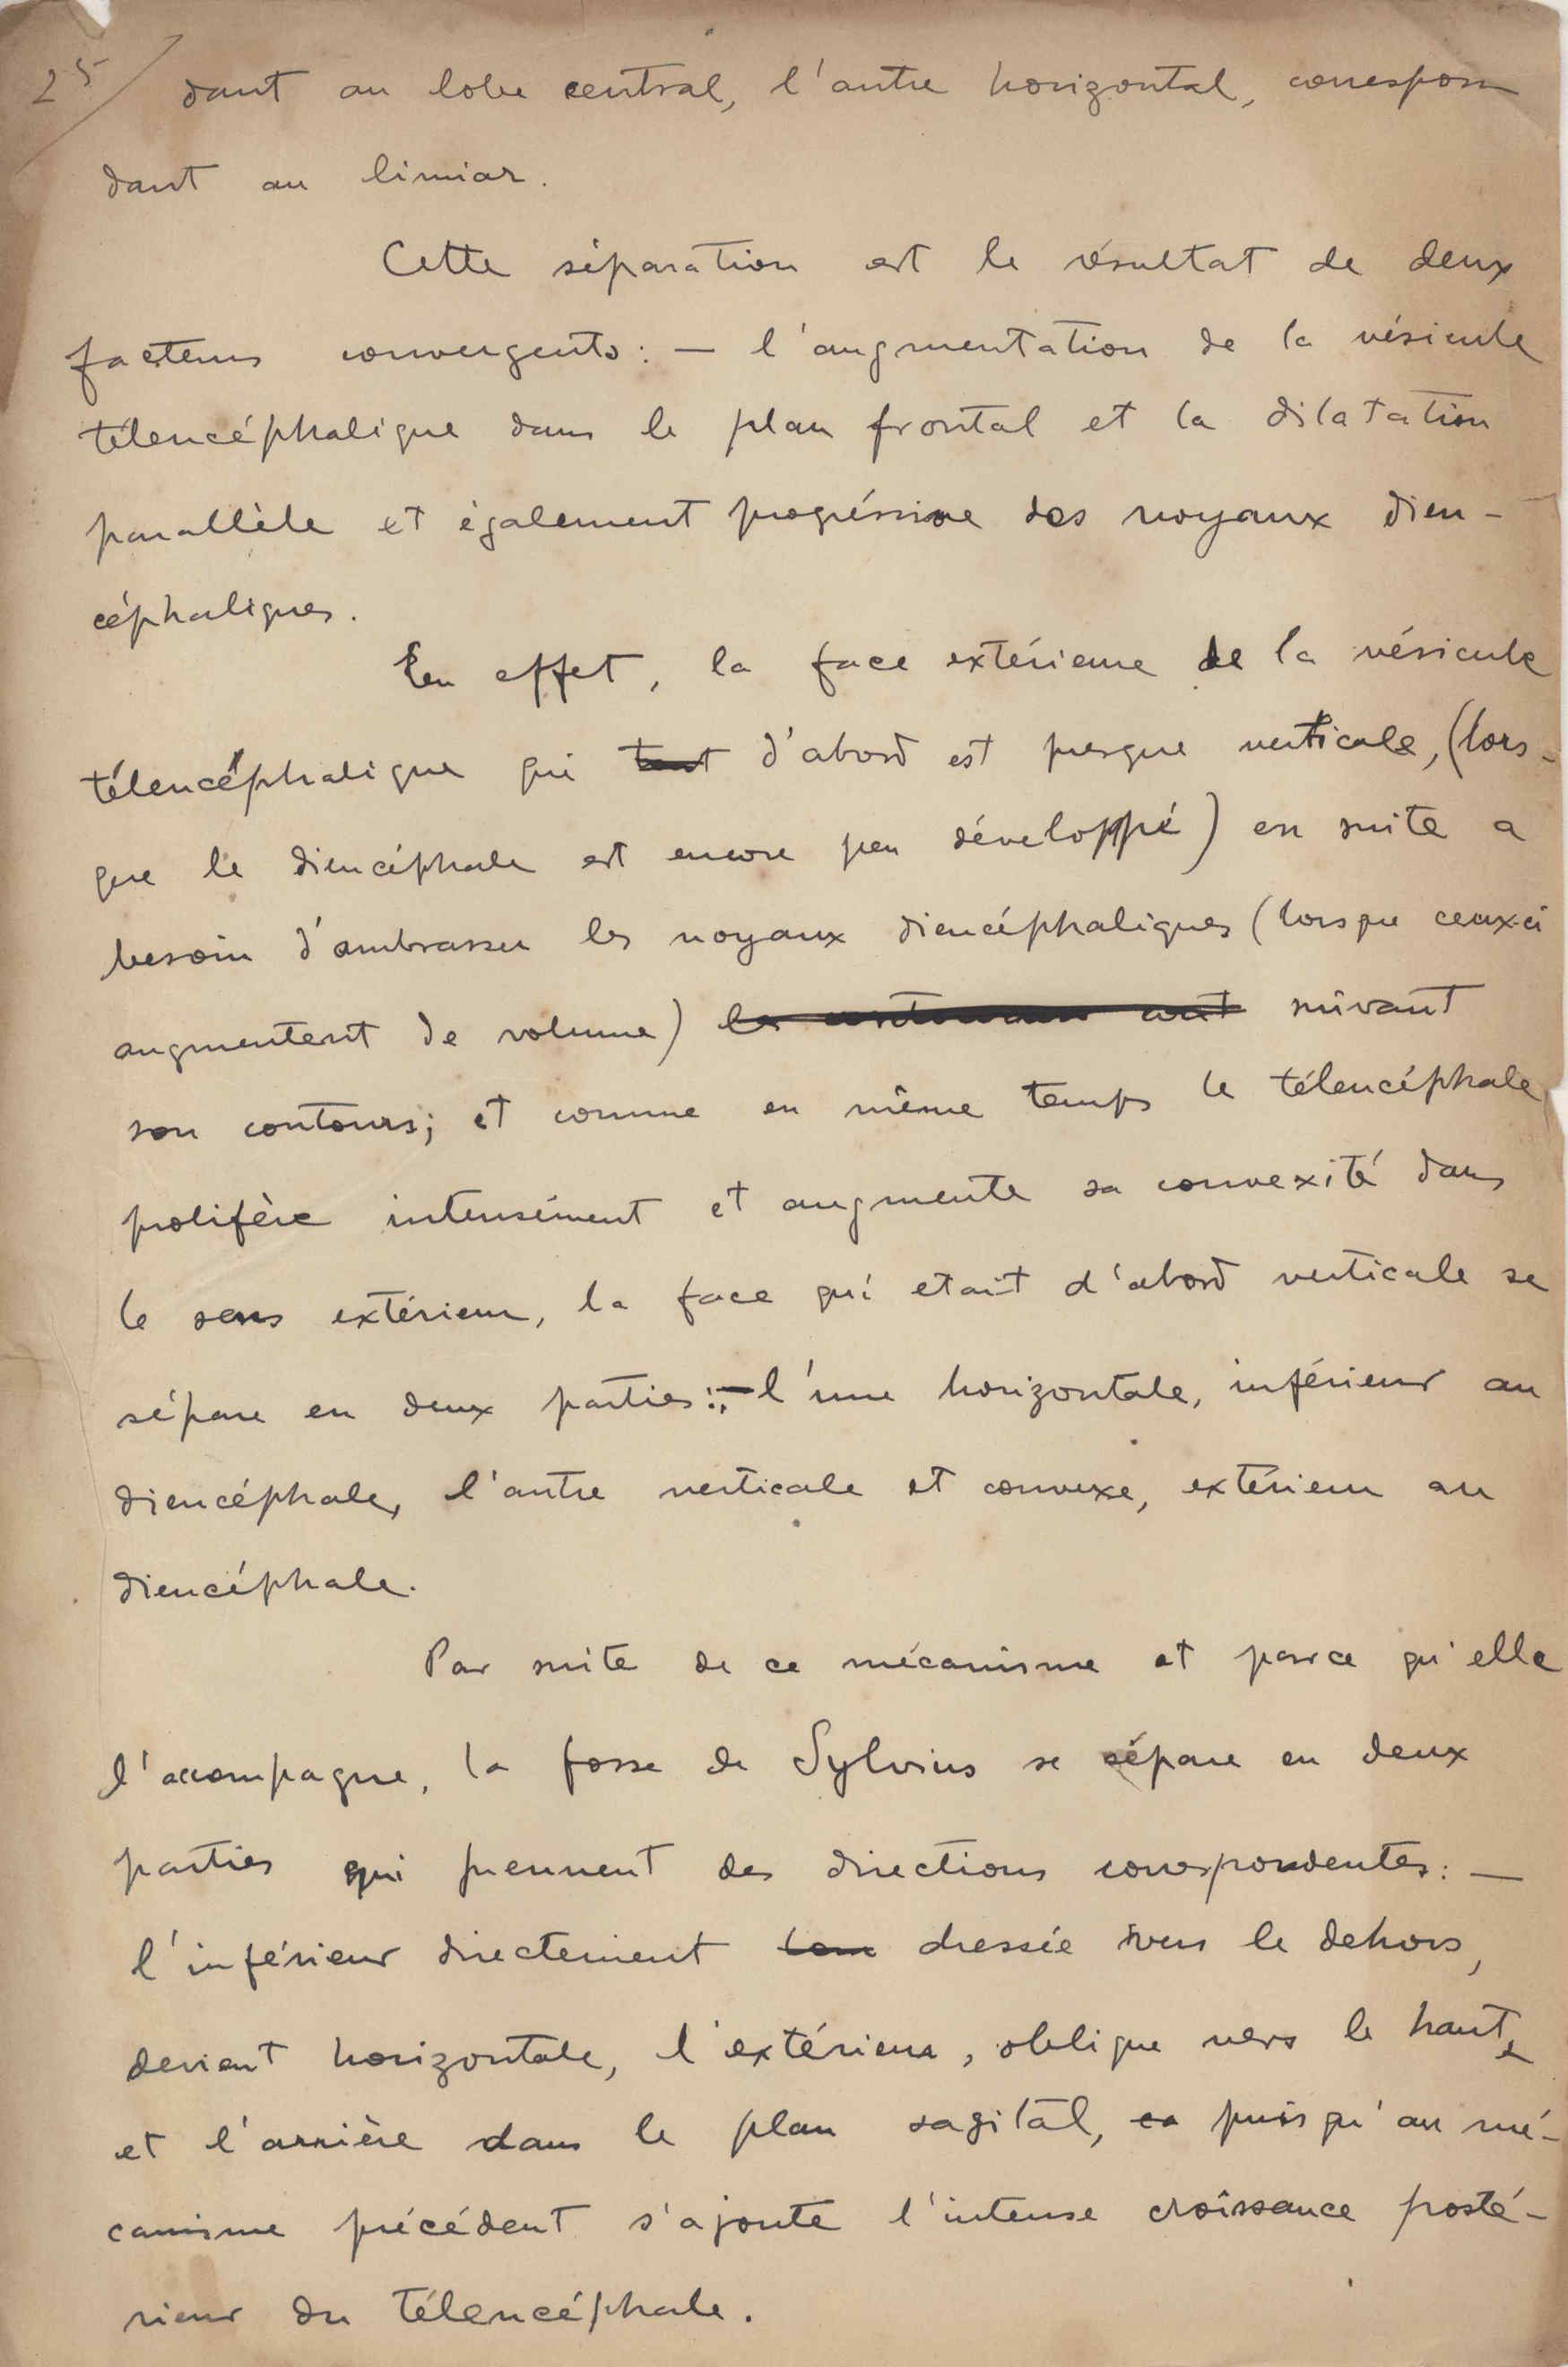 25/ dant au lobe central, l'autre horizontal, correspon
dant au limiar.
Cette séparation est le résultat de deux
facteurs convergents: — l'augmentation de la vésicule
télencéphalique dans le plan frontal et la dilatation
parallèle et également progréssive des noyaux dien-
céphaliques.
En effet, la face extérieure de la vésicule
télencéphalique qui tout d'abord est presque verticale, (lors-
que le diencéphale est encore peu développé) en suite a
besoin d'ambrasser les noyaux diencéphaliques (lorsque ceux-ci
augmentent de volume) suivant
son contours; et comme en même temps le télencéphale
prolifère intensément et augmente sa convexité dans
le sens extérieur, la face qui etait d'abord verticale se
sépare en deux parties: — l'une horizontale, inférieur au
diencéphale, l'autre verticale et convexe, extérieur au
diencéphale.
Par suite de ce mécanisme et parce qu'elle
l'accompagne, la fosse de Sylvius se sépare en deux
parties qui prennent des directions correspondentes: —
l'inférieur directement dressée vers le dehors,
devient horizontale, l'extérieur, oblique vers le haut
et l'arrière dans le plan sagital, puisqu'au mé-
canisme précédent s'ajoute l'intense croissance posté-
rieur du télencéphale.